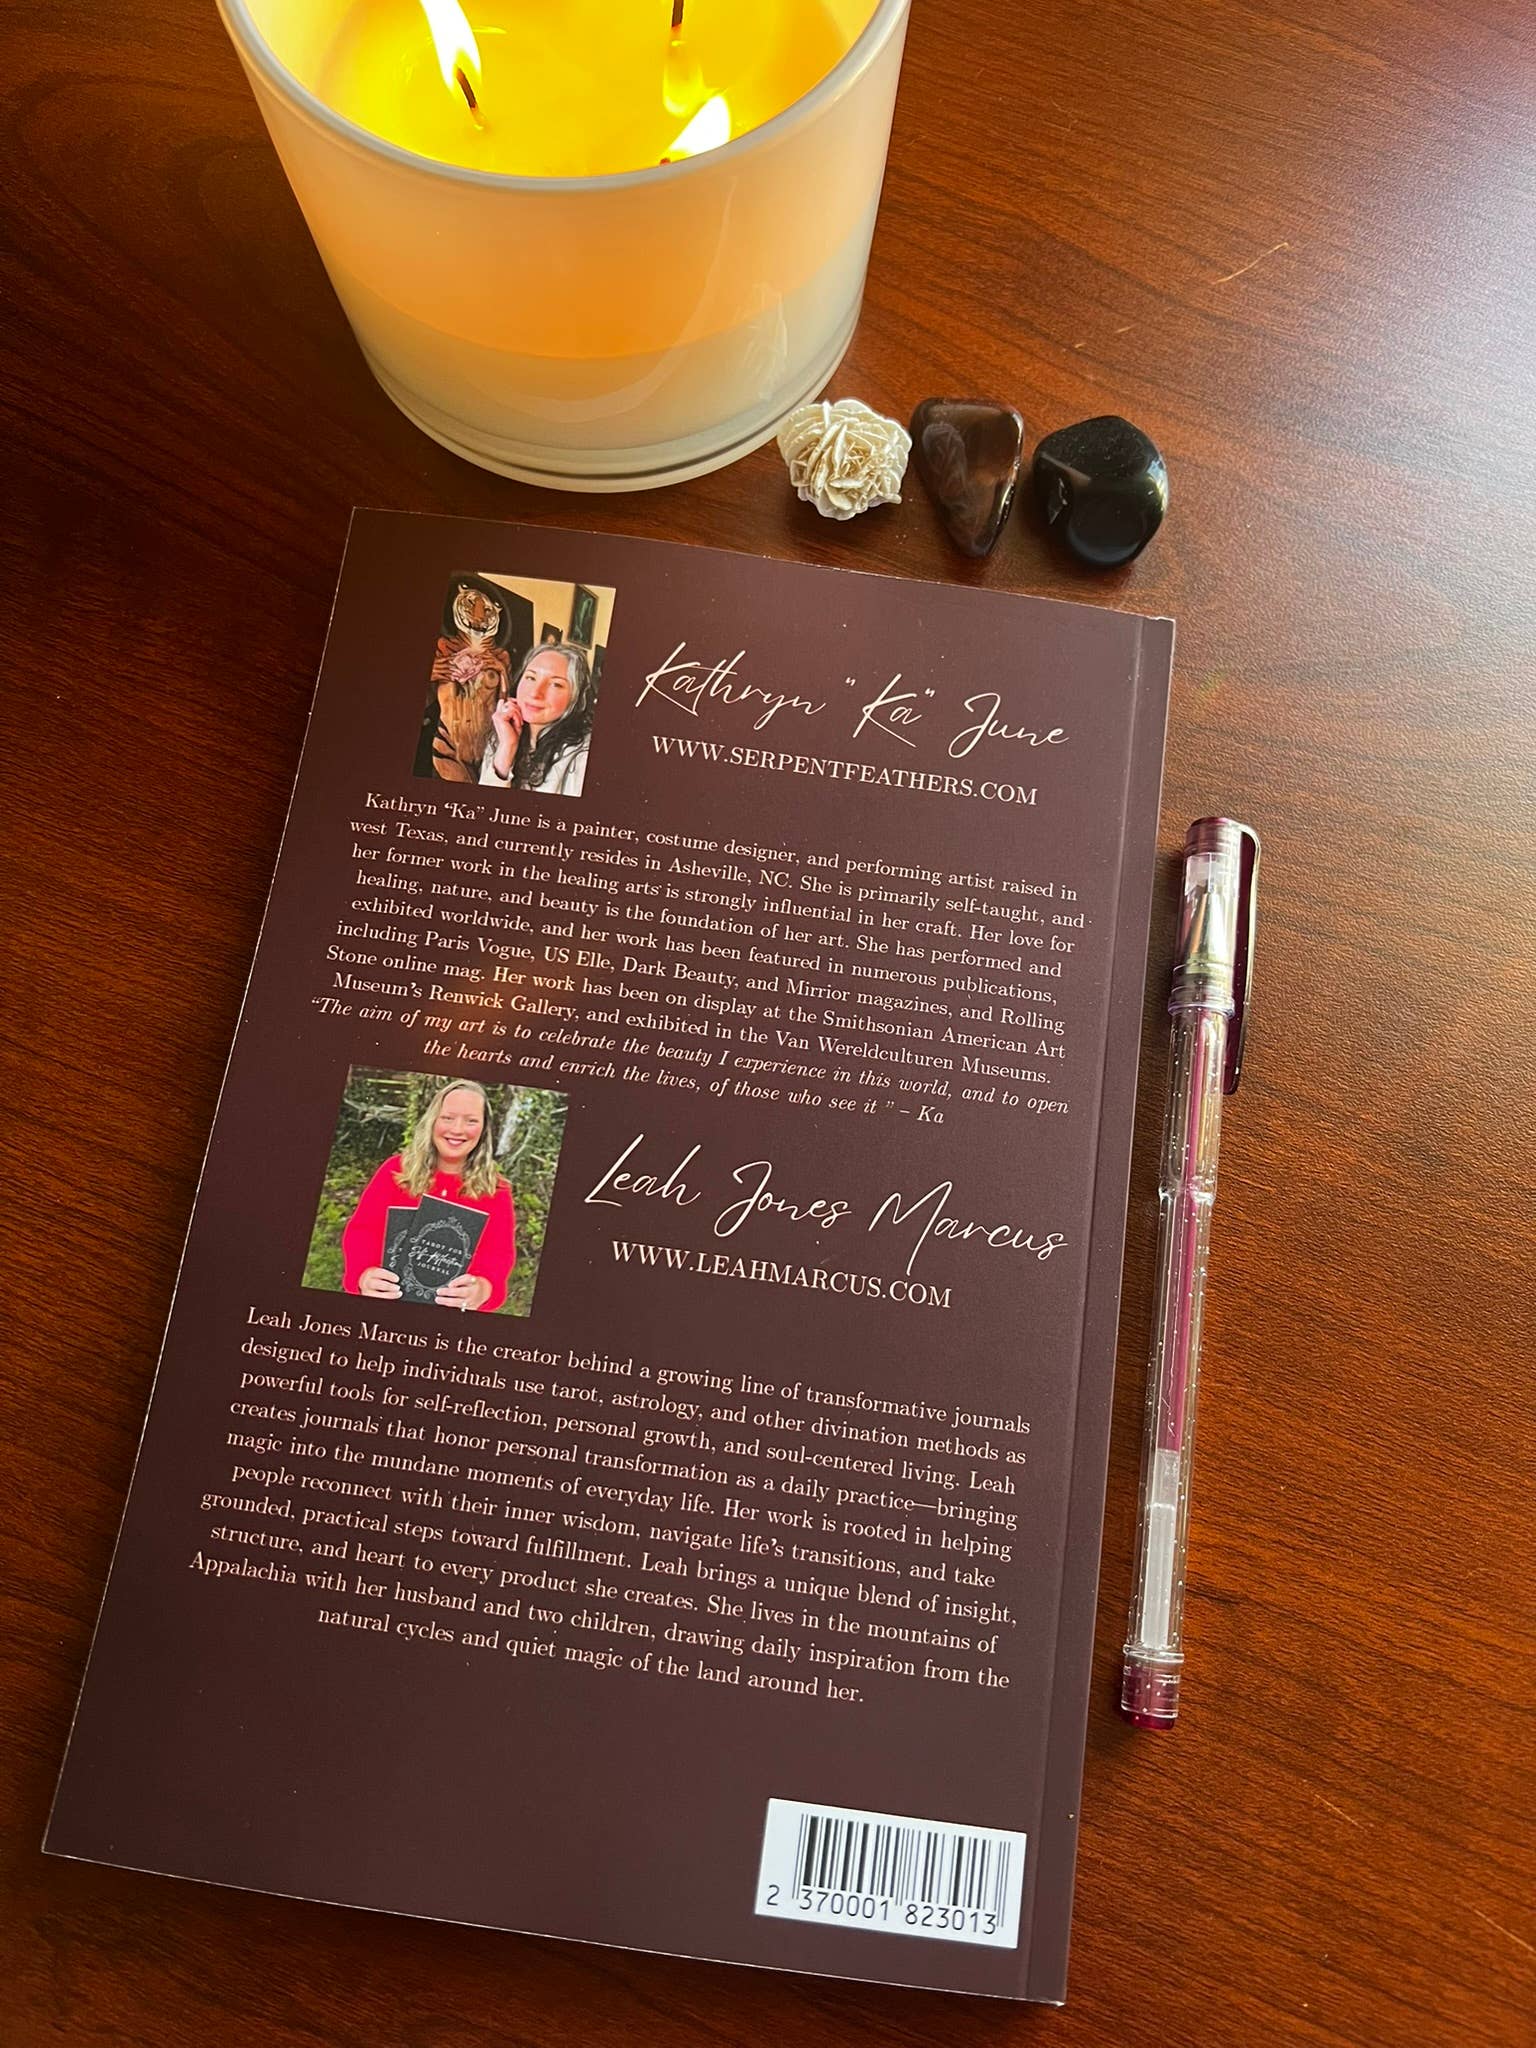 Kathryn "Ka" June
WWW.SERPENTFEATHERS.COM
Kathryn “Ka” June is a painter, costume designer, and performing artist raised in
west Texas, and currently resides in Asheville, NC. She is primarily self-taught, and
her former work in the healing arts is strongly influential in her craft. Her love for
healing, nature, and beauty is the foundation of her art. She has performed and
exhibited worldwide, and her work has been featured in numerous publications,
including Paris Vogue, US Elle, Dark Beauty, and Mirrior magazines, and Rolling
Stone online mag. Her work has been on display at the Smithsonian American Art
Museum's Renwick Gallery, and exhibited in the Van Wereldculturen Museums.
“The aim of my art is to celebrate the beauty I experience in this world, and to open
the hearts and enrich the lives, of those who see it ” – Ka
TAROT FOR
Self-Reflection
JOURNAL
Leah Jones Marcus
WWW.LEAHMARCUS.COM
Leah Jones Marcus is the creator behind a growing line of transformative journals
designed to help individuals use tarot, astrology, and other divination methods as
powerful tools for self-reflection, personal growth, and soul-centered living. Leah
creates journals that honor personal transformation as a daily practice—bringing
magic into the mundane moments of everyday life. Her work is rooted in helping
people reconnect with their inner wisdom, navigate life's transitions, and take
grounded, practical steps toward fulfillment. Leah brings a unique blend of insight,
structure, and heart to every product she creates. She lives in the mountains of
Appalachia with her husband and two children, drawing daily inspiration from the
natural cycles and quiet magic of the land around her.
2 370001 823013